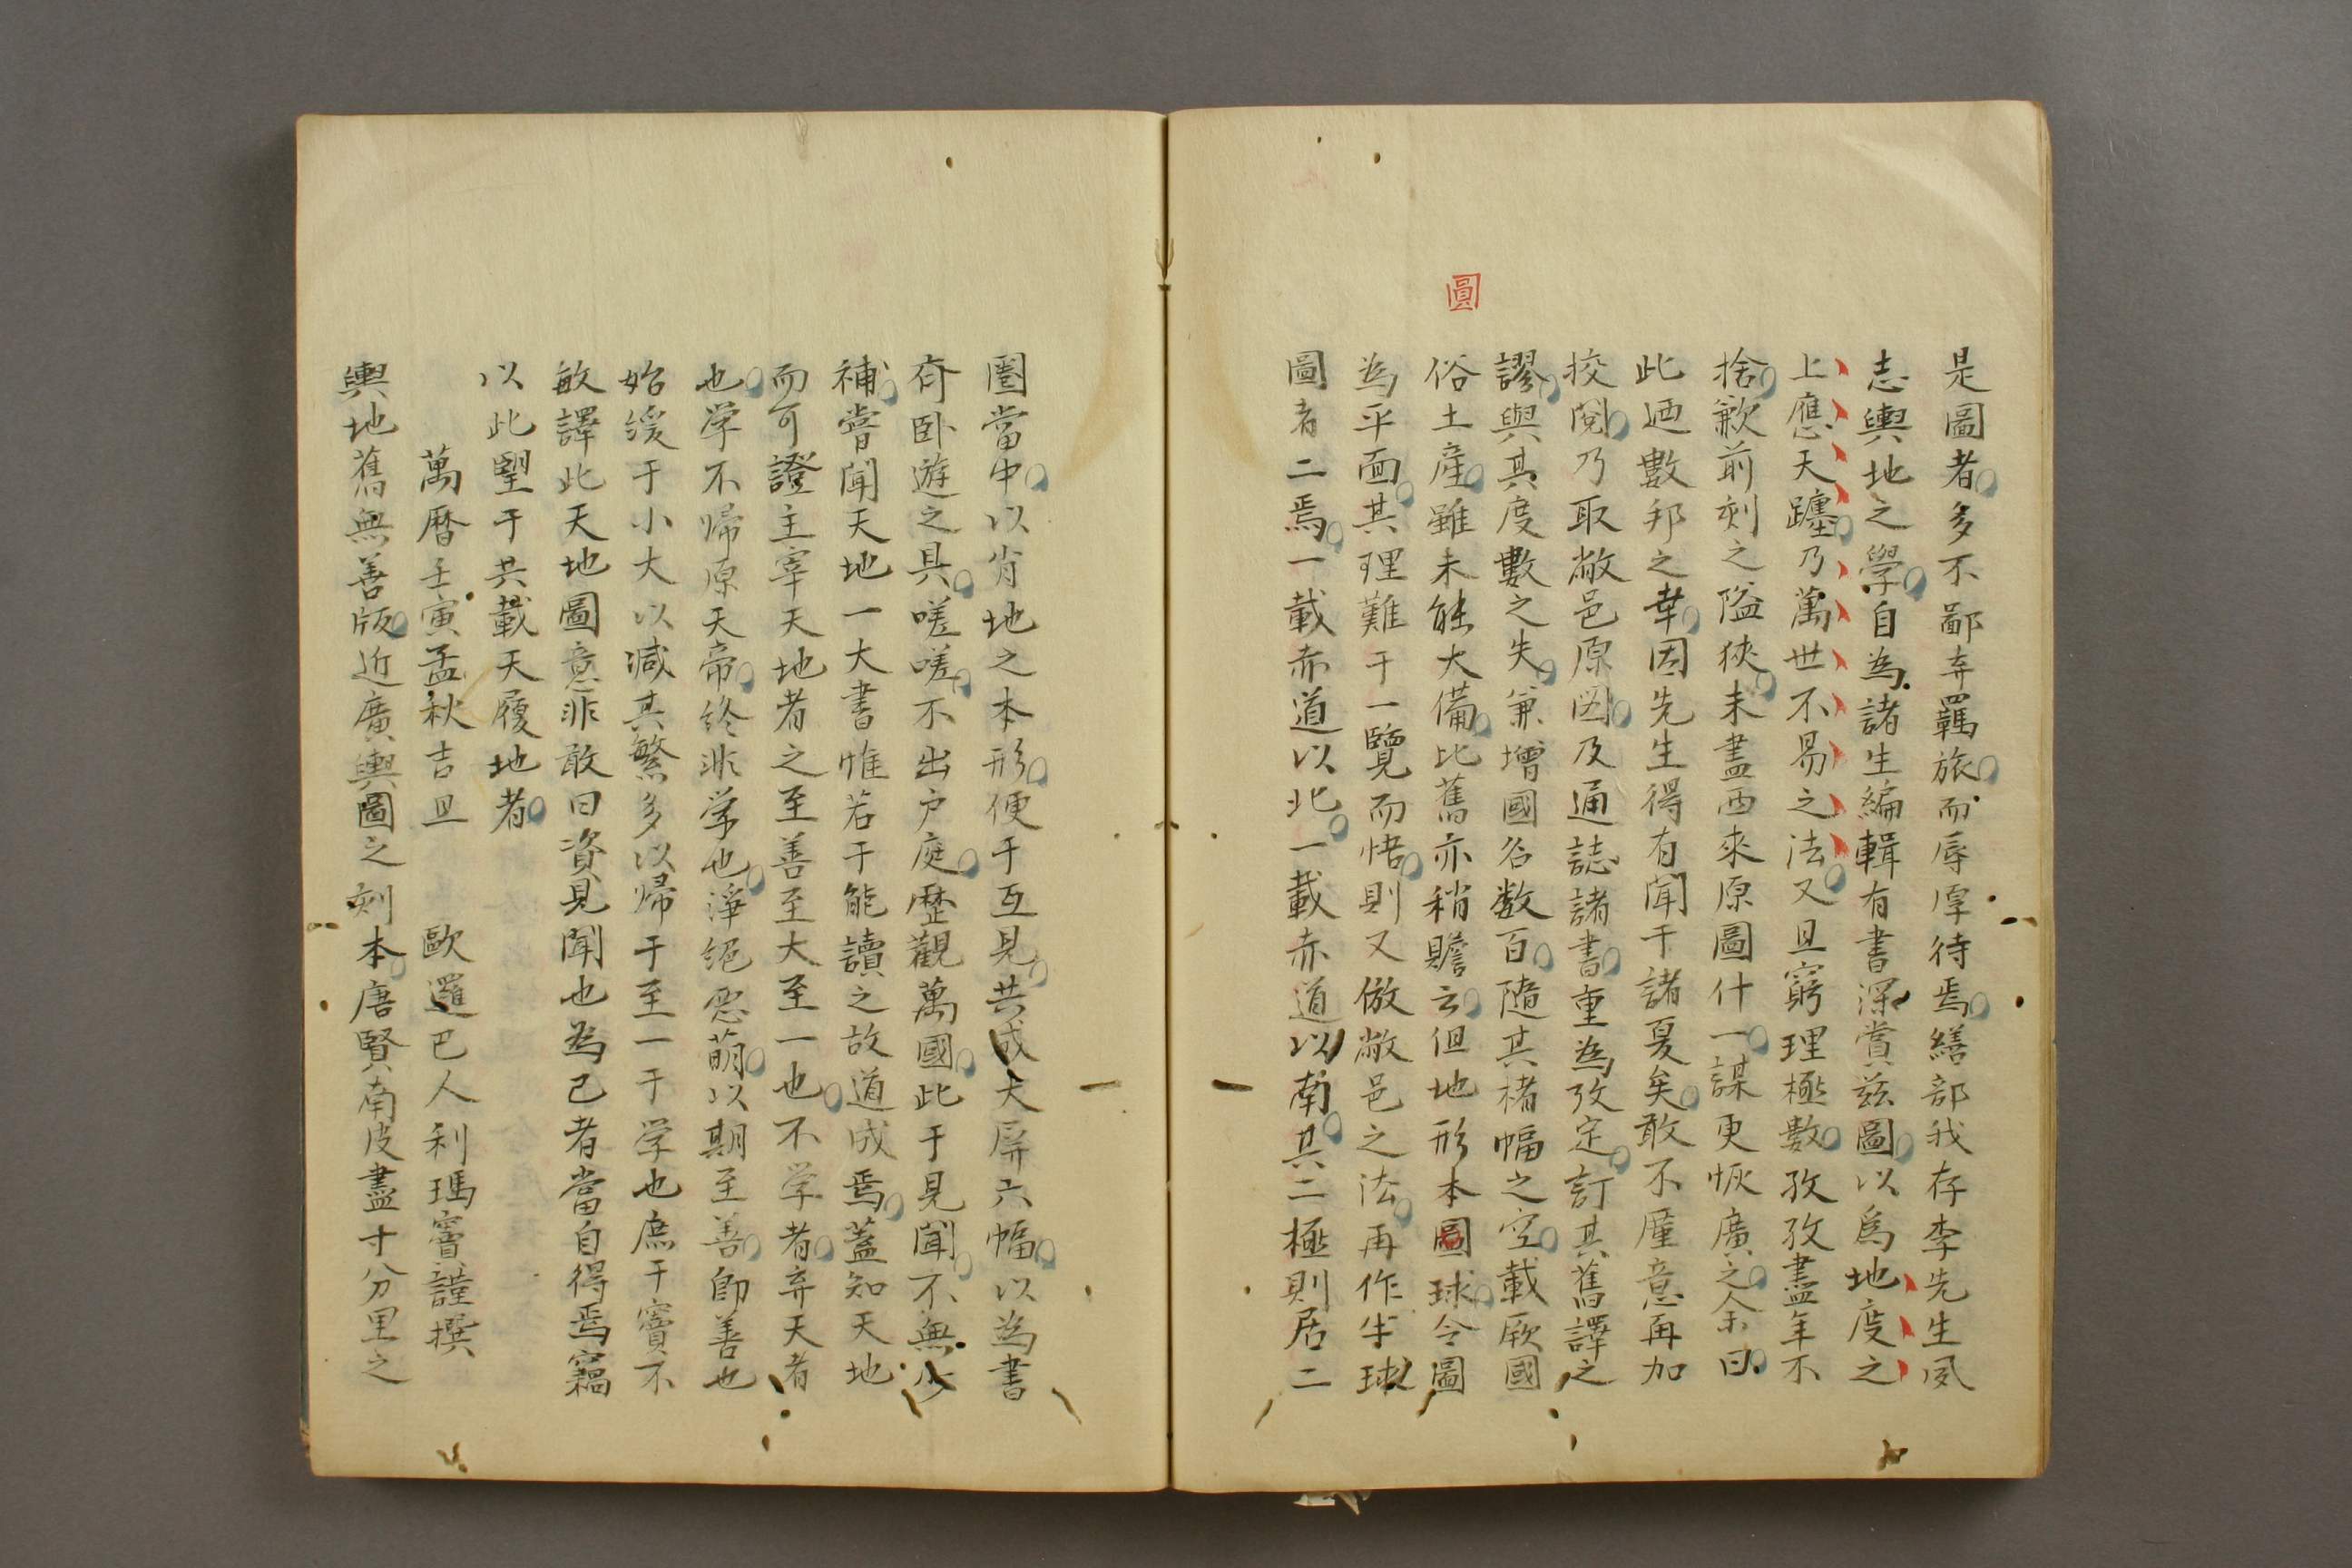 是圖者多不鄙弃羈旅而辱厚待焉繕部我存李先生夙
志輿地之學自為諸生編輯有書深賞茲圖以為地度之
上應天躔乃萬世不易之法又且窮理極數孜孜盡年不
捨歉前刻之隘狹未盡西來原圖什一謀更恢廣之余曰
此迺數邦之幸因先生得有聞于諸夏矣敢不厪意再加
挍閱乃取敝邑原図及通誌諸書重為攷定訂其舊譯之
謬與其度數之失兼增國名数百隨其楮幅之空載厥國
俗土產雖未能大備比舊亦稍贍云但地形本圖球今圖
圓
為平面其理難于一覽而悟則又倣敝邑之法再作半球
圖者二焉一載赤道以北一載赤道以南其二極則居二
圏當中以肖地之本形便于互見共成大屏六幅以為書
斋卧遊之具嗟嗟不出户庭歷觀萬國此于見聞不無少
補嘗聞天地一大書惟若干能讀之故道成焉蓋知天地
而可證主宰天地者之至善至大至一也不学者弃天者
也学不㱕原天帝終非学也淨絕恶萌以期至善即善也
始緩于小大以減其繁多以㱕于至一于学也庶于竇不
敏譯此天地圖意非敢曰資見聞也為己者當自得焉竊
以此朢于共載天履地者
萬暦壬寅孟秋吉旦　歐邏巴人利瑪竇謹撰
輿地舊無善版近廣輿圖之刻本唐賢南皮盡寸分里之